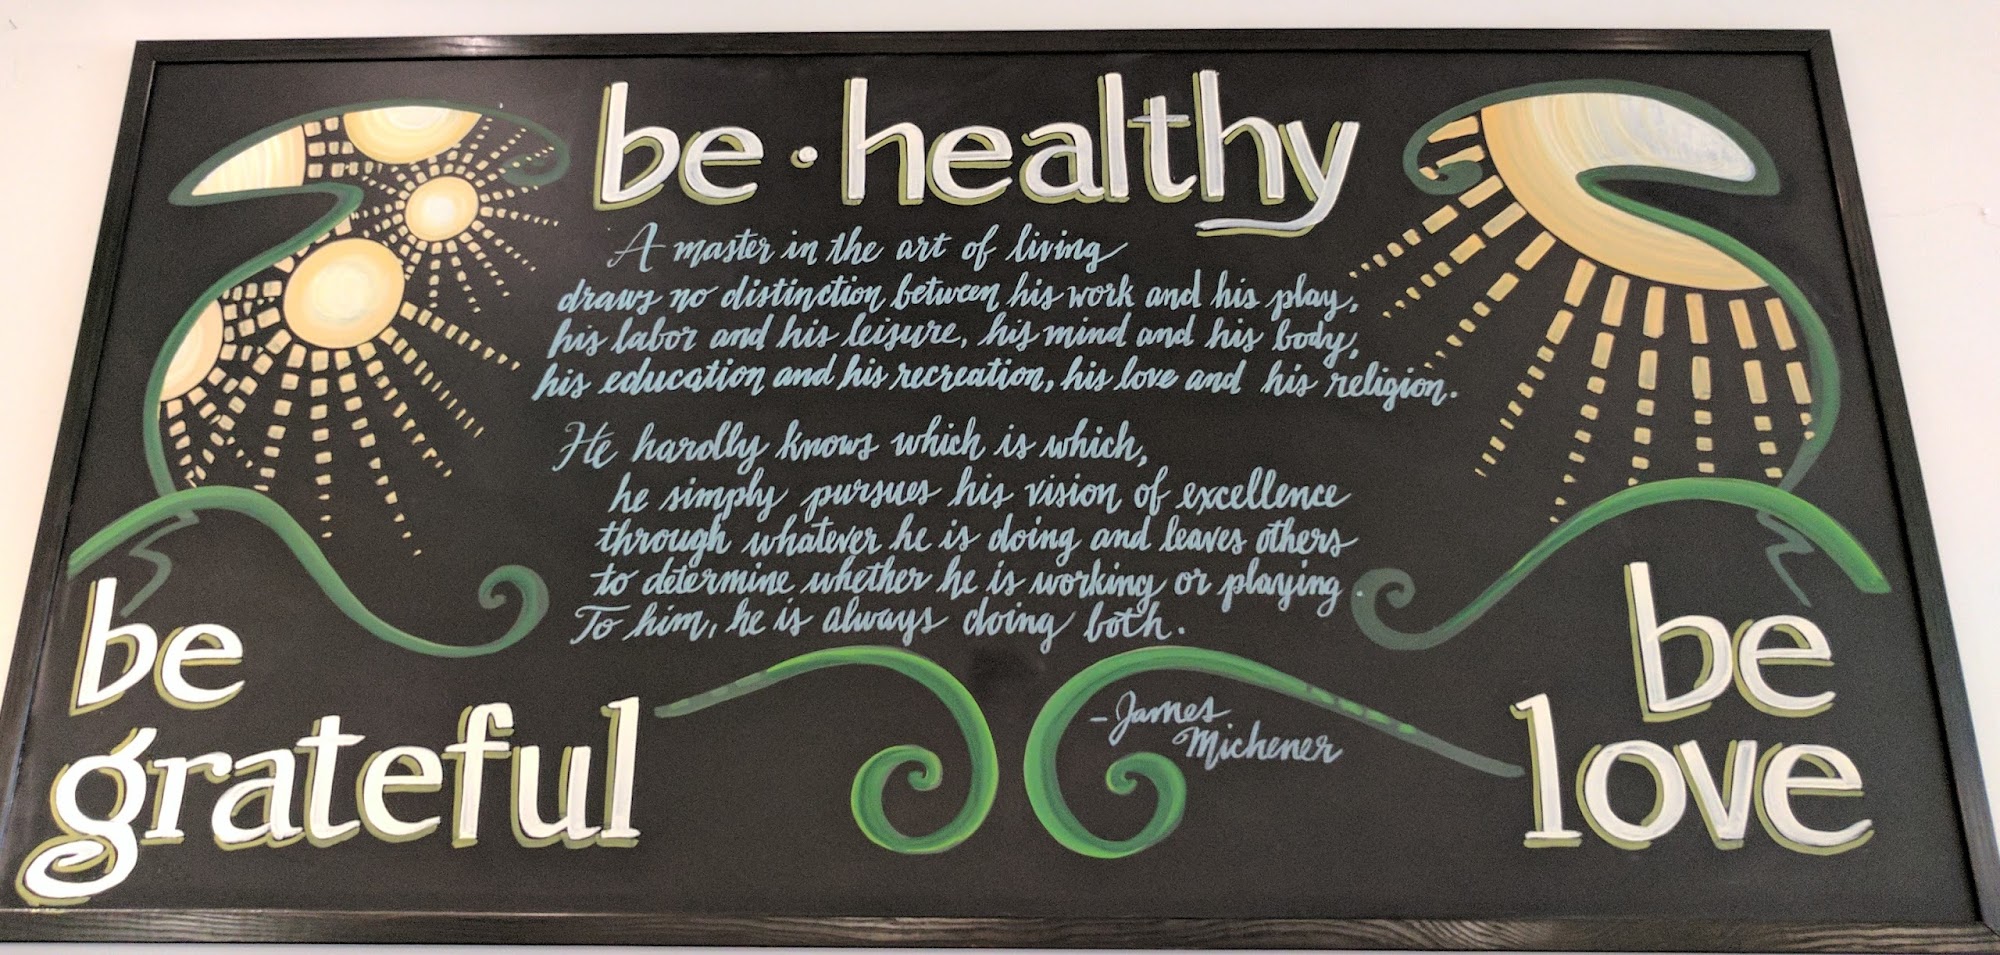 be · healthy
A master in the art of living
draws no distinction between his work and his play,
his labor and his leisure, his mind and his body,
his education and his recreation, his love and his religion.
He hardly knows which is which,
he simply pursues his vision of excellence
through whatever he is doing and leaves others
to determine whether he is working or playing.
To him, he is always doing both.
- James
Michener
be
grateful
be
love